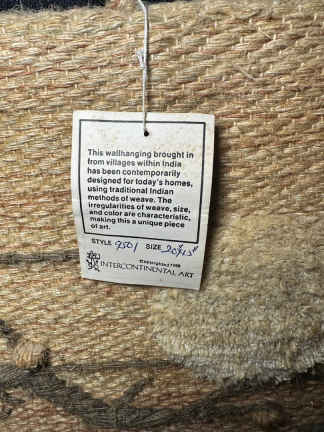 This wallhanging brought in
from villages within India
has been contemporarily
designed for today's homes,
using traditional Indian
methods of weave. The
irregularities of weave, size,
and color are characteristic,
making this a unique piece
of art.
STYLE 9501 SIZE
INTERCONTINENTAL ART